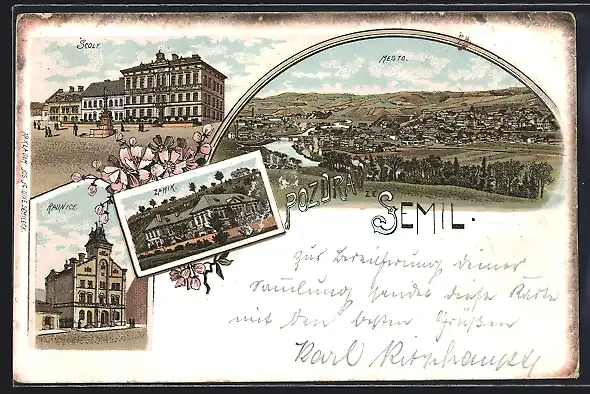 ŠCOLY.
MĚSTO.
ZÁMEK.
RADNICE.
POZDRAV ZE
SEMIL.
zur Bereicherung deiner
Samlung sendet diese Karte
mit den besten Grüßen
Karl